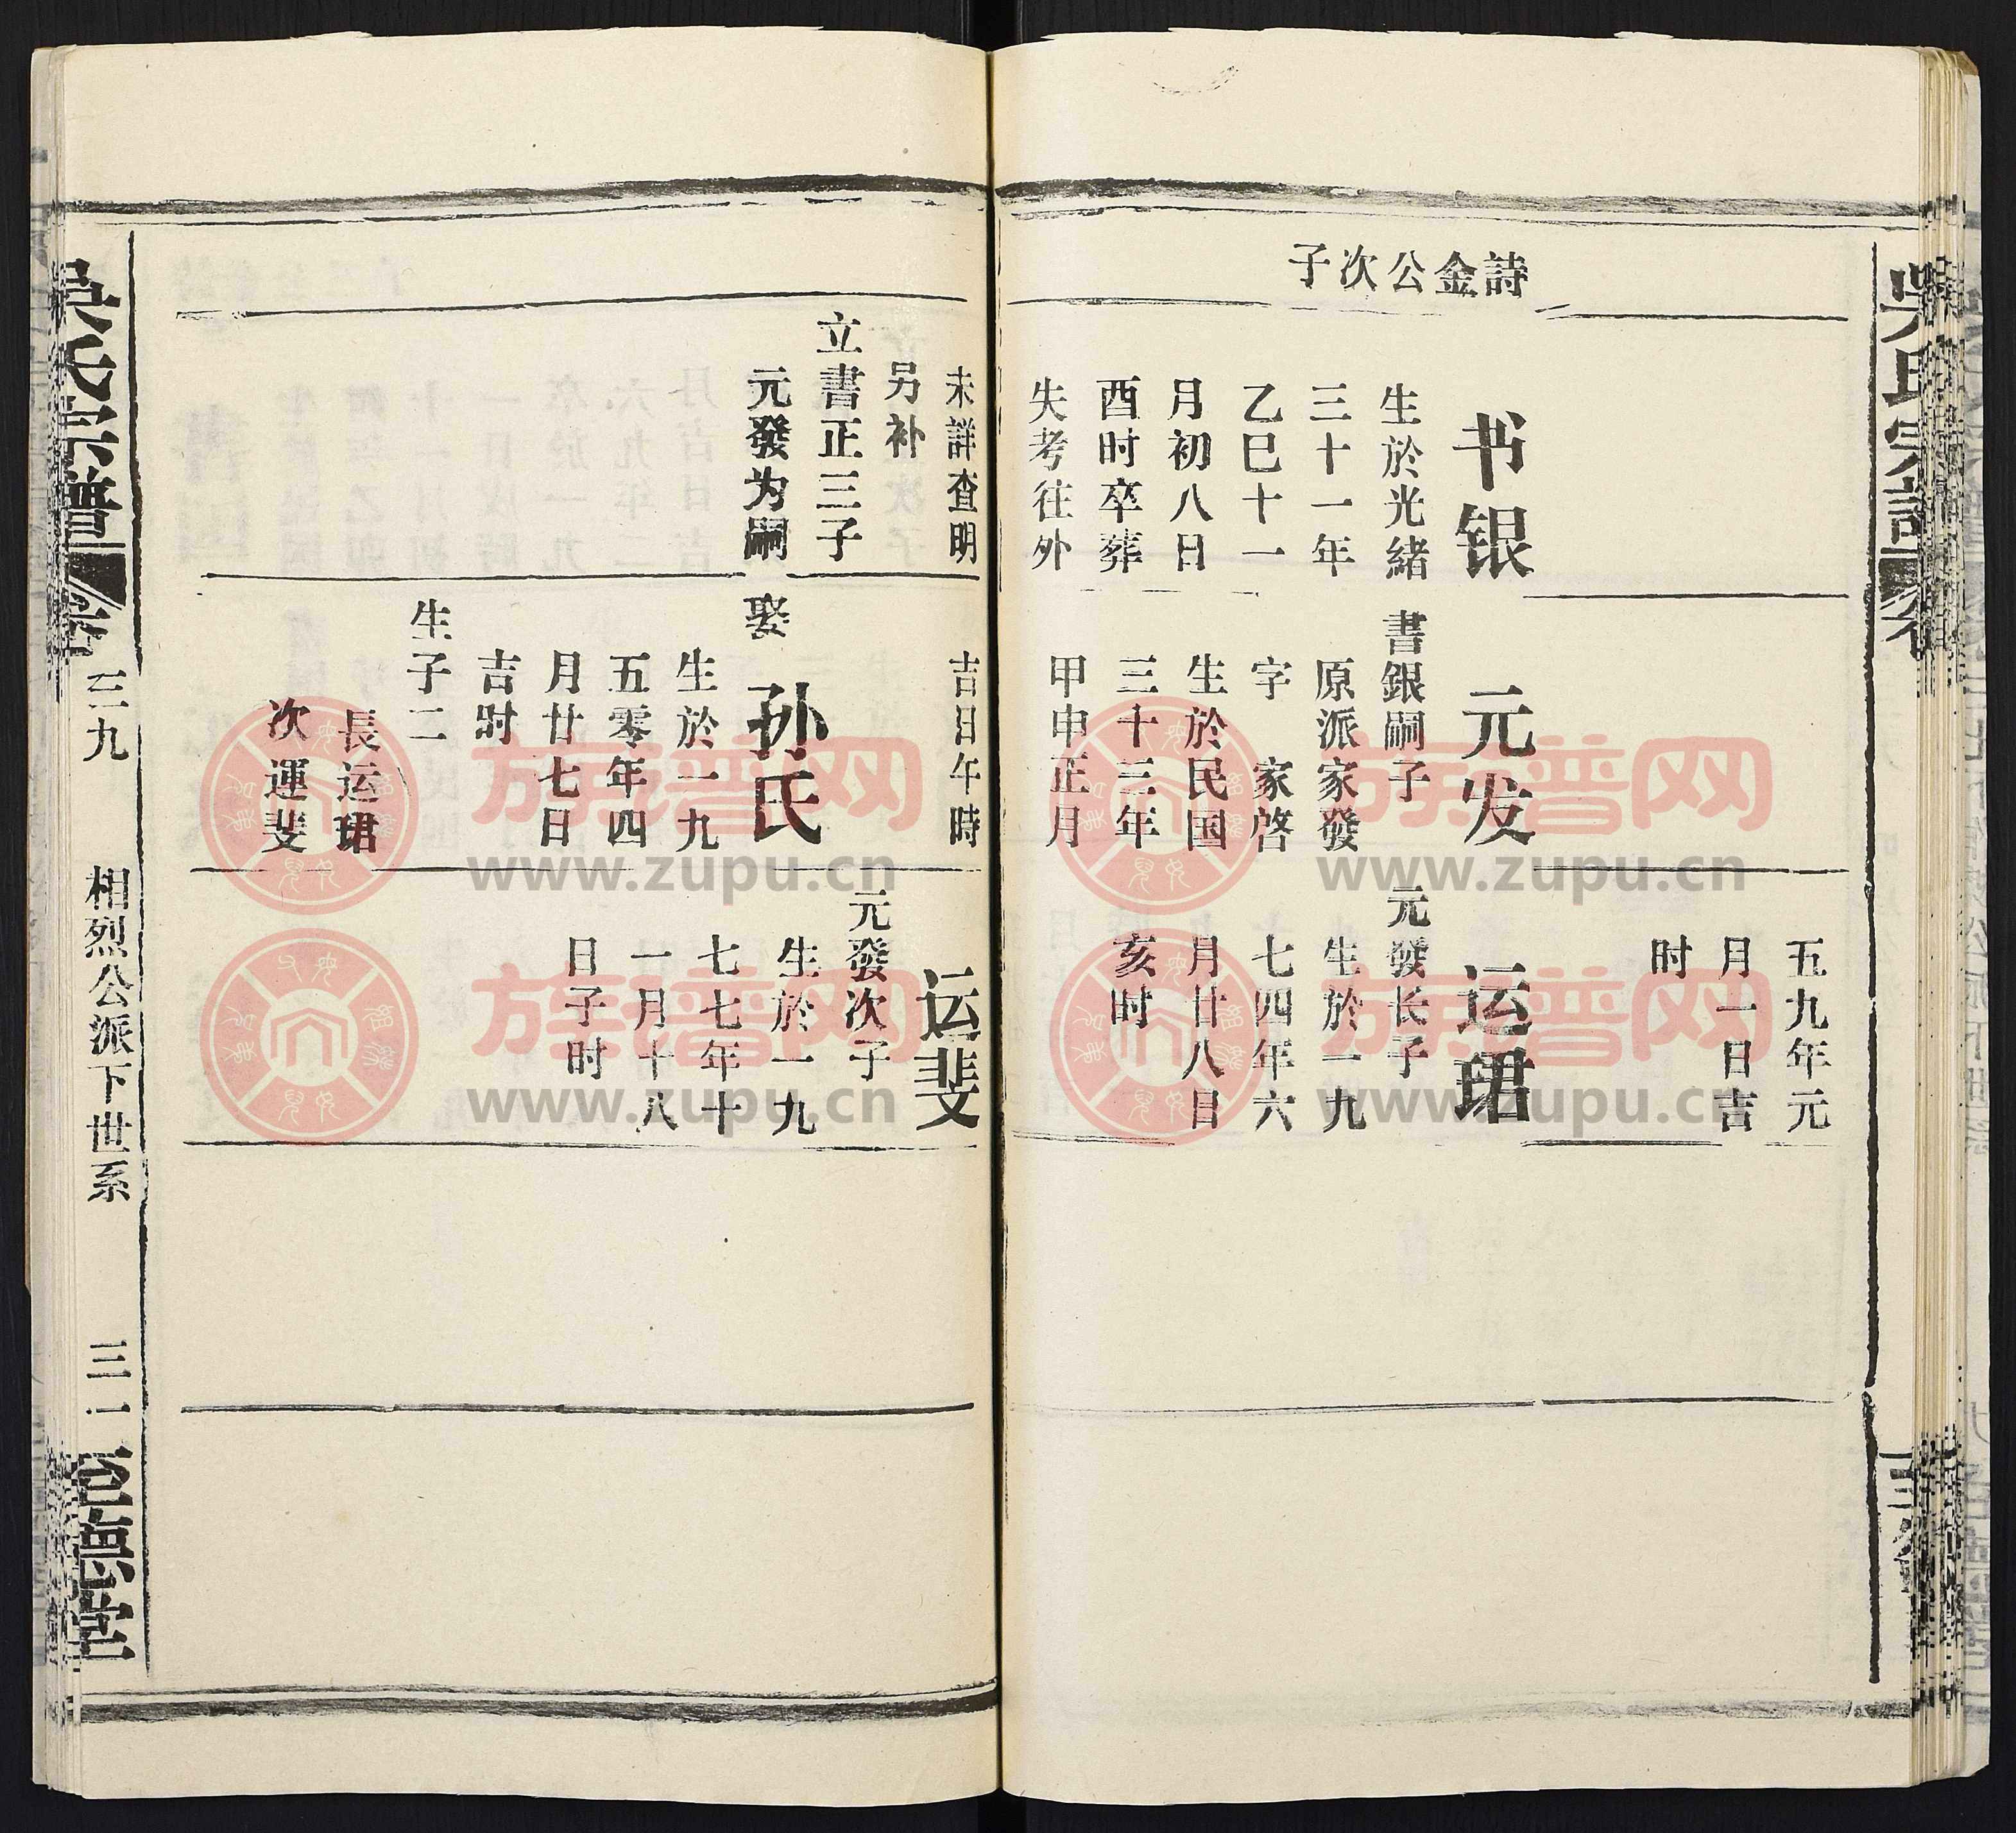 吳氏宗譜
詩金公次子
书银
生於光緒
三十一年
乙巳十一
月初八日
酉时卒葬
失考往外
未詳查明
另补
立書正三子
元發为嗣
元发
書銀嗣子
原派家發
字 家啓
生於民国
三十三年
甲申正月
吉日午時
娶 孙氏
生於一九
五零年四
月廿七日
吉时
生子二
長运珺
次運斐
五九年元
月一日吉
时
运珺
元發长子
生於一九
七四年六
月廿八日
亥时
运斐
元發次子
生於一九
七七年十
一月十八
日子时
吳氏宗譜
卷
三九
相烈公派下世系
三一
德堂
族谱网
www.zupu.cn
族谱网
www.zupu.cn
族谱网
www.zupu.cn
族谱网
www.zupu.cn